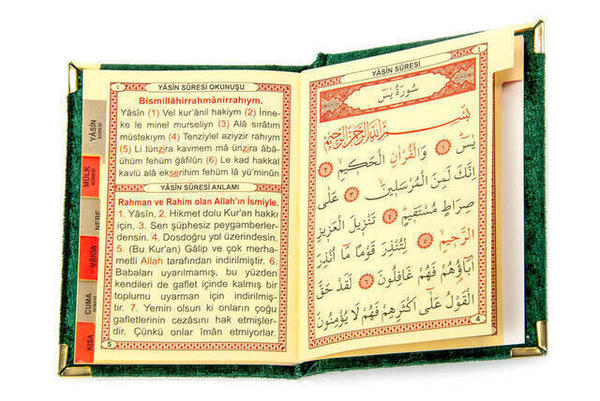 YÂSİN
SÛRESİ
MÜLK
SÛRESİ
NEBE
VÂKIA
CUMA
SÛRESİ
KISA
YÂSİN SÛRESİ OKUNUŞU
Bismillâhirrahmânirrahıym.
Yâsîn (1) Vel kur'ânil hakiym (2) İnne-
ke le minel murseliyn (3) Alâ sırâtım
müstekıym (4) Tenziylel aziyzir rahıym
(5) Li tünzira kavmem mâ ünzira âbâ-
ühüm fehüm gâfilûn (6) Le kad hakkal
kavlü alâ ekserihim fehüm lâ yü'minûn
YÂSİN SÛRESİ ANLAMI
Rahman ve Rahim olan Allah'ın İsmiyle.
1. Yâsîn, 2. Hikmet dolu Kur'an hakkı
için, 3. Sen şüphesiz peygamberler-
densin. 4. Dosdoğru yol üzerindesin.
5. (Bu Kur'an) Gâlip ve çok merha-
metli Allah tarafından indirilmiştir. 6.
Babaları uyarılmamış, bu yüzden
kendileri de gaflet içinde kalmış bir
toplumu uyarman için indirilmiş-
tir. 7. Yemin olsun ki onların çoğu
gafletlerinin cezasını hak etmişler-
dir. Çünkü onlar îmân etmiyorlar.
5
YÂSİN SÛRESİ
سُورَةُ يٰسٓ
بِسْمِ اللّٰهِ الرَّحْمٰنِ الرَّحِيمِ
يٰسٓ ﴿١﴾ وَالْقُرْاٰنِ الْحَكِيمِ ﴿٢﴾
اِنَّكَ لَمِنَ الْمُرْسَلِينَ ﴿٣﴾ عَلٰى
صِرَاطٍ مُسْتَقِيمٍ ﴿٤﴾ تَنْزِيلَ الْعَزِيزِ
الرَّحِيمِ ﴿٥﴾ لِتُنْذِرَ قَوْمًا مَٓا اُنْذِرَ
اٰبَٓاؤُ۬هُمْ فَهُمْ غَافِلُونَ ﴿٦﴾ لَقَدْ حَقَّ
الْقَوْلُ عَلٰٓى اَكْثَرِهِمْ فَهُمْ لَا يُؤْمِنُونَ
4